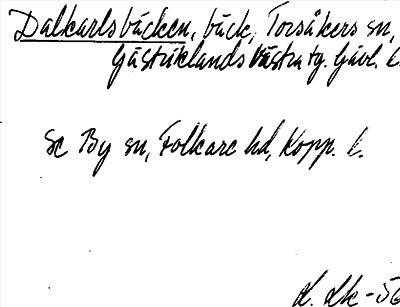 Dalkarlsbäcken, bäck, Torsåkers sn,
Gästriklands västra tg. Gävl. l.
Se By sn, Folkare hd, Kopp. l.